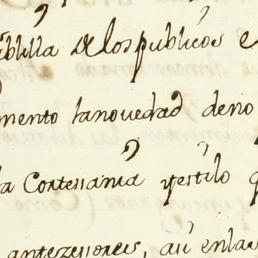 ablilla de los publicos e
mento la novedad de no
la Cortesania y estilo q
antezessores, asi en la